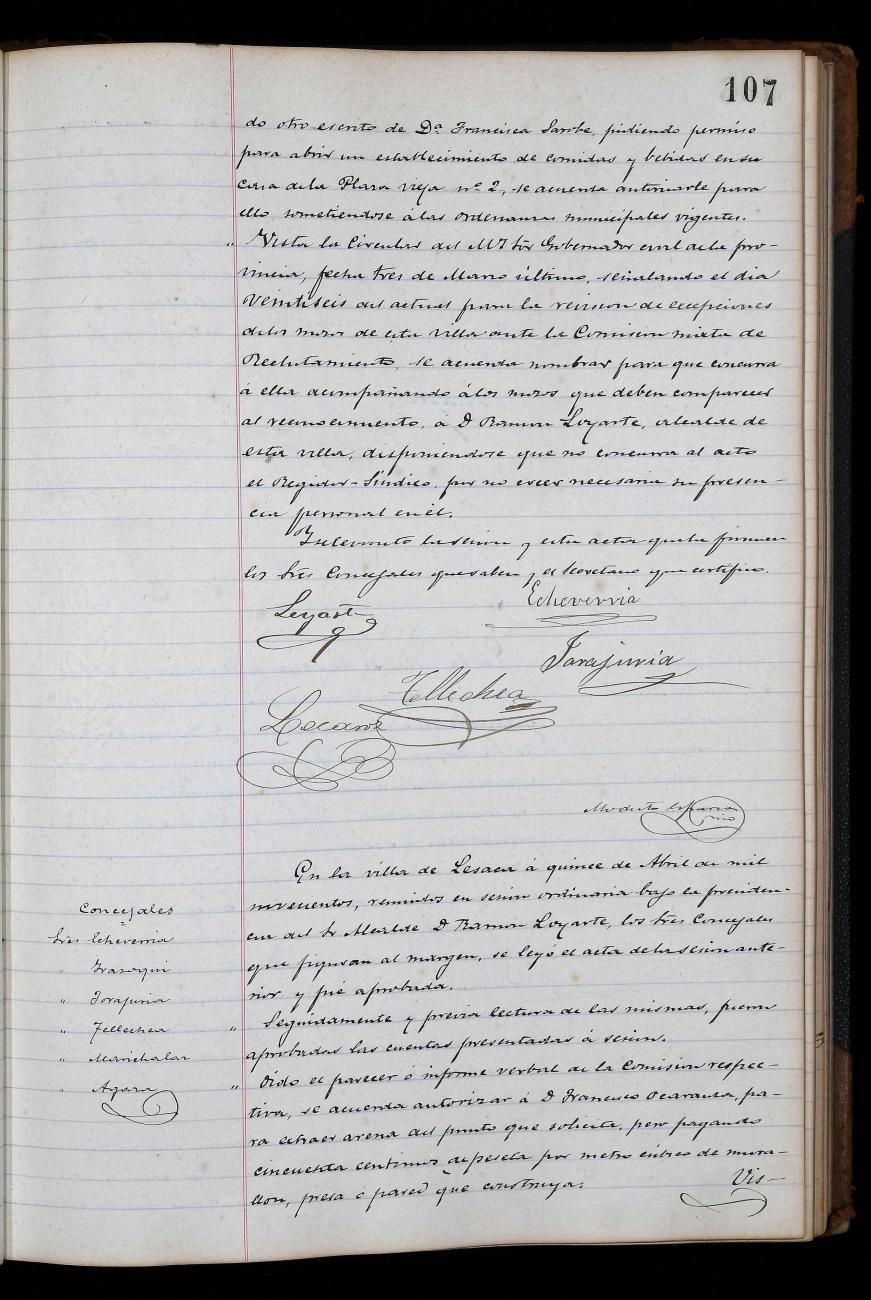 107
do otro escrito de Dª Francisca Sarobe, pidiendo permiso
para abrir un establecimiento de comidas y bebidas en su
casa de la Plaza vieja nº 2, se acuerda autorizarle para
ello sometiéndose á las ordenanzas municipales vigentes.
" Vista la Circular del M I Sor Gobernador civil de la pro-
vincia, fecha tres de Marzo último, señalando el dia
veintiseis del actual para la revision de excepciones
de los mozos de esta villa ante la Comision mixta de
Reclutamiento, se acuerda nombrar para que concurra
á ella acompañando á los mozos que deben comparecer
al reconocimiento, á D Ramon Loyarte, alcalde de
esta villa, disponiendose que no concurra al acto
el Regidor-Síndico, por no creer necesaria su presen-
cia personal en él.
Se levantó la sesion y esta acta que la firman
los Sres Concejales que saben y el Secretario que certifico.
Loyarte
Echeverria
Tarajuria
Tellechea
Lecaroz
Modesto
En la villa de Lesaca á quince de Abril de mil
novecientos, reunidos en sesion ordinaria bajo la presiden-
cia del Sr Alcalde D Ramon Loyarte, los Sres Concejales
que figuran al margen, se leyó el acta de la sesion ante-
rior y fué aprobada.
Concejales
Sres Echeverria
" Irazoqui
" Tarajuria
" Tellechea
" Marichalar
" Agara
" Seguidamente y previa lectura de las mismas, fueron
aprobadas las cuentas presentadas á sesion.
" Oido el parecer ó informe verbal de la Comision respec-
tiva, se acuerda autorizar á D Francisco Ocaranza, pa-
ra extraer arena del punto que solicita, pero pagando
cincuenta centimos de peseta por metro cúbico de mura-
llon, presa ó pared que construya.
Vis-